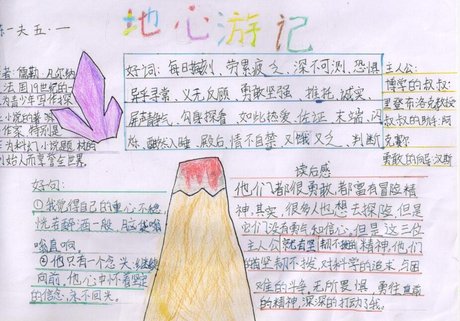 地心游记
者:儒勒·凡尔纳
法国19世纪的一
为青少年写作探
险小说的著
作家,特别是
为科幻小说题材的
创始人而享誉全世界。
好词:每日 劳累疲乏、深不可测、恐惧
异乎寻常、义无反顾、勇敢坚强、推托、诚实
屏声静气、勾肩探看、如此热爱、佐证、末端、内
陈、酣然入睡、殿后、情不自禁、又饿又乏、判断
主人公:
博学的叔叔:
里登布洛克教授
叔叔的助手:阿
克赛尔
勇敢的向导:汉斯
好句:
①我觉得自己的重心不稳
恍若醉酒一般,脑袋嗡
嗡直响。
②他只有一个念头:继续
向前。他心中怀着坚定
的信念,永不回头。
读后感
他们都很勇敢,都富有冒险精
神,其实,很多人也想去探险,但是
它们没有勇气和信心,但是这三位
主人公 坚韧不拨的精神,他们
坚韧不拨、对科学的追求、与困
难的斗争、无所畏惧、勇往直前
的精神,深深的打动了我。